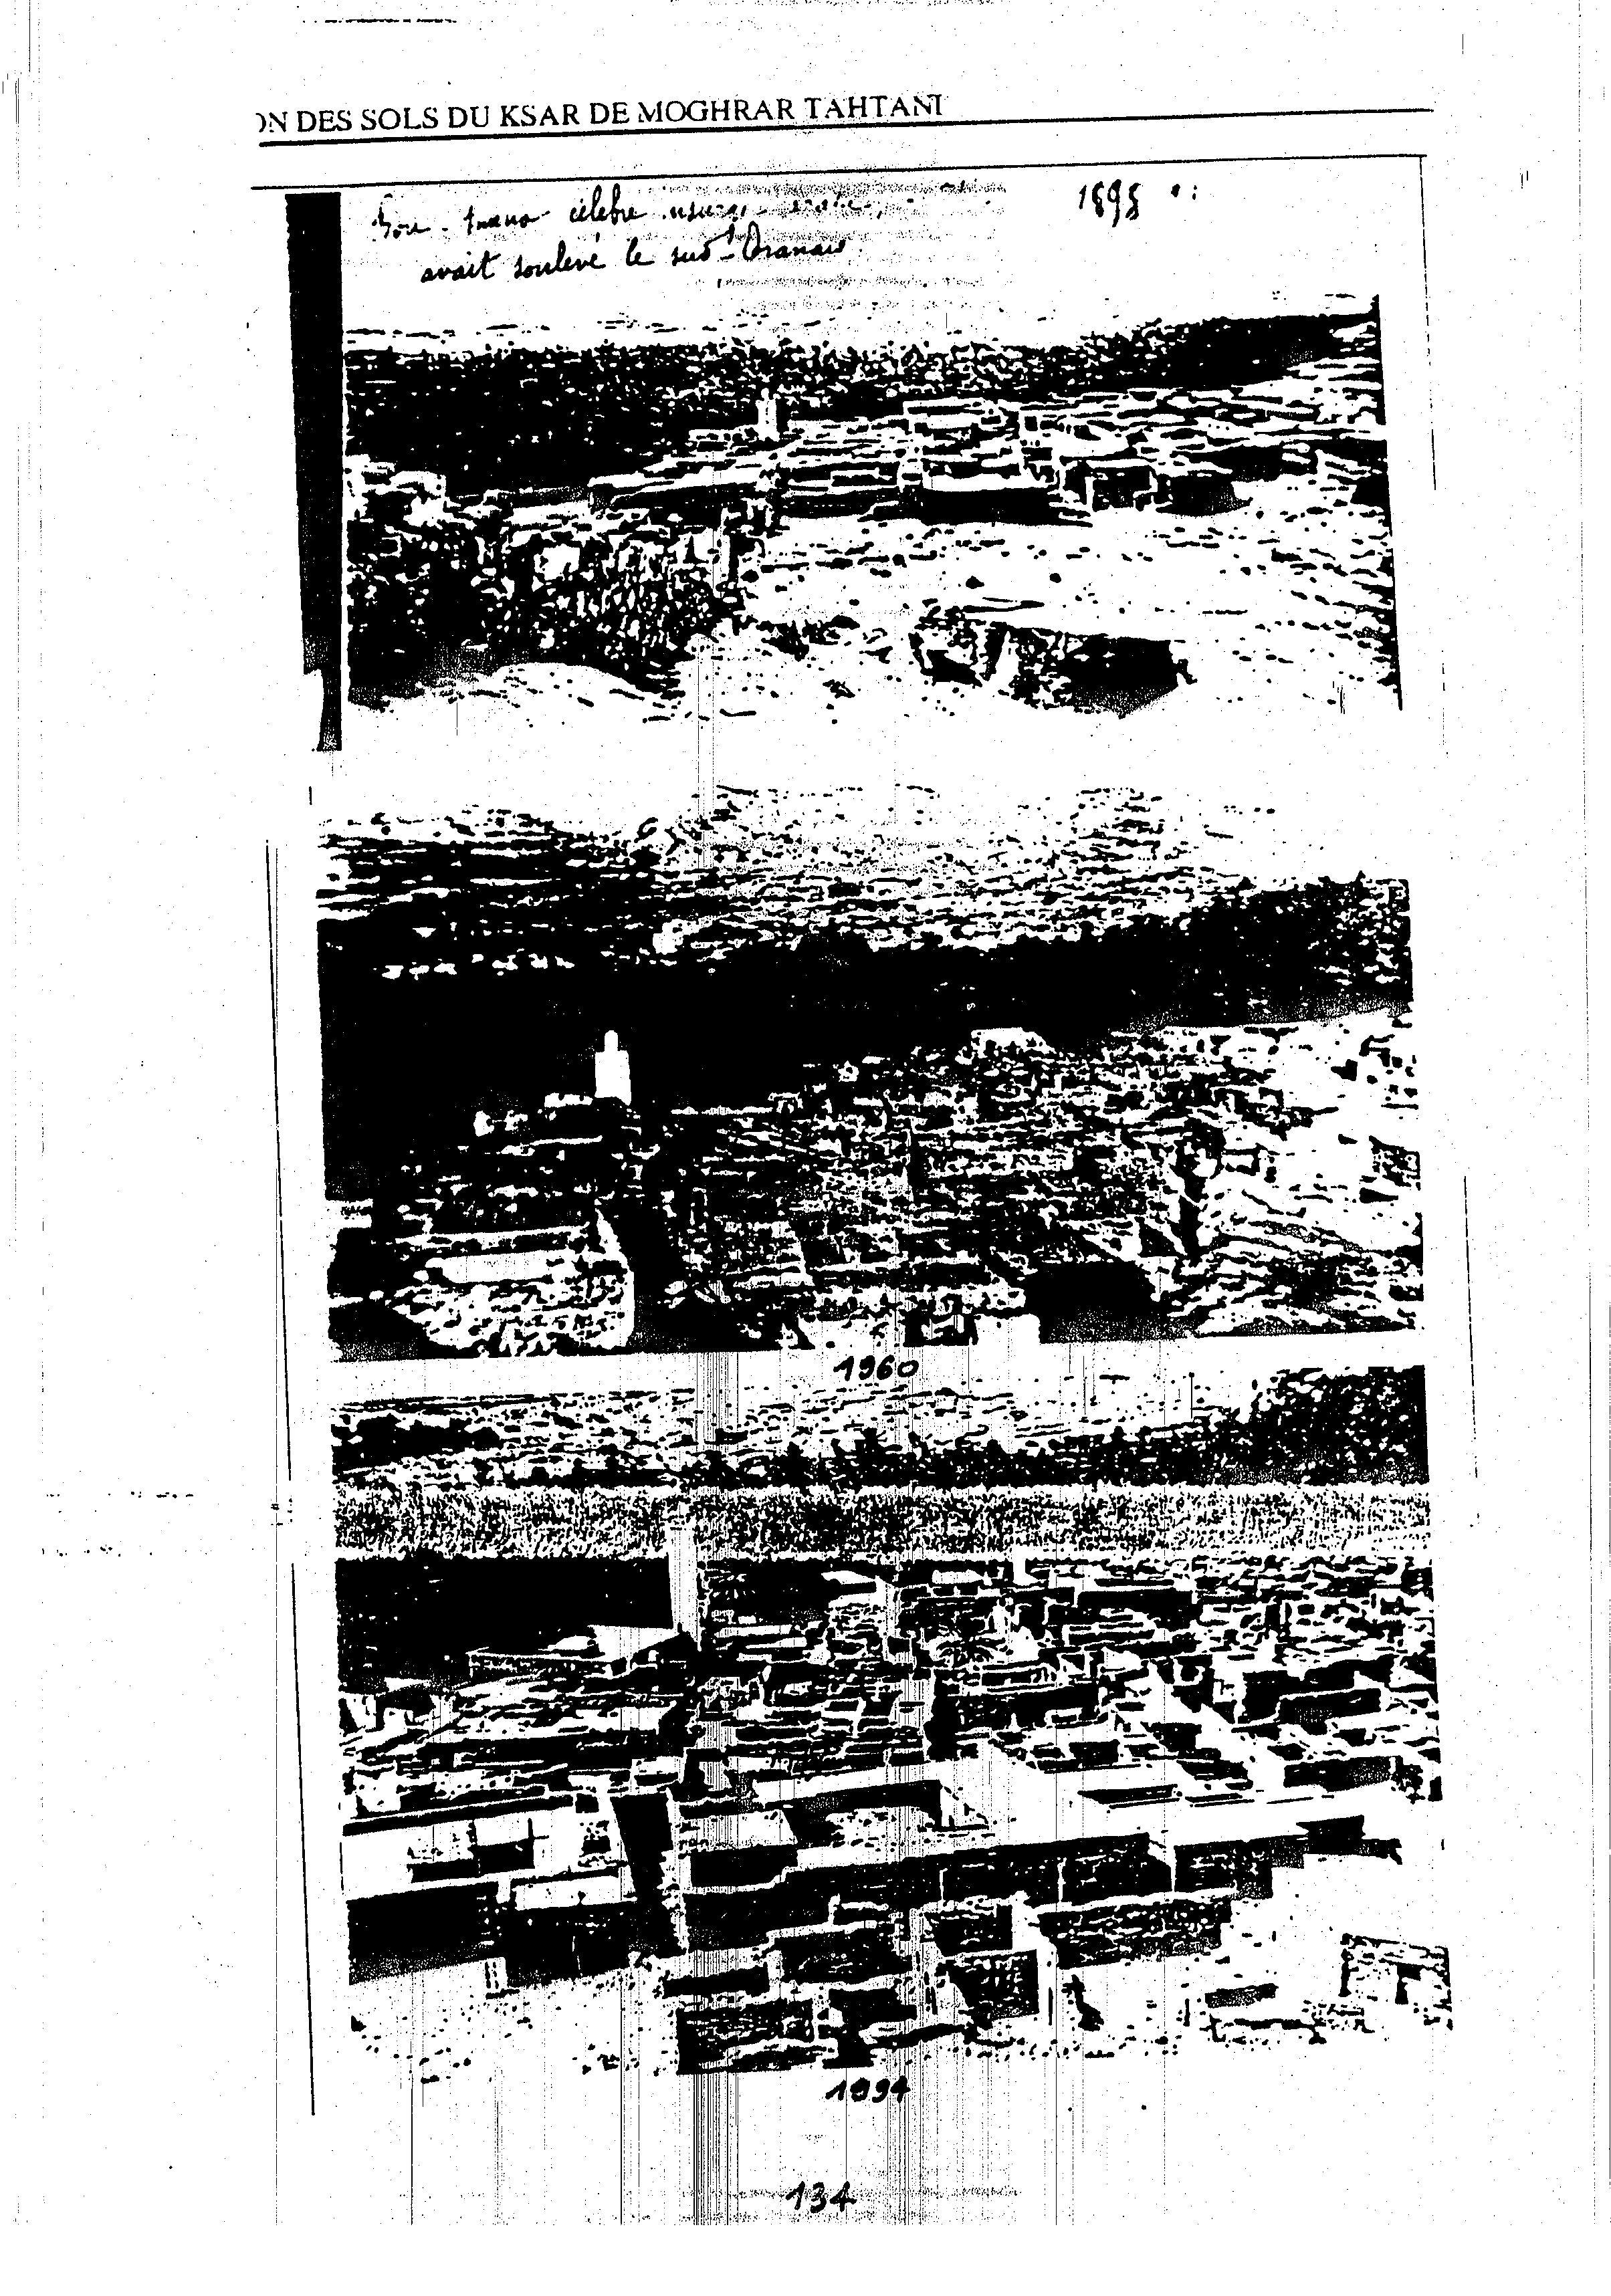 ON DES SOLS DU KSAR DE MOGHRAR TAHTANI
célèbre 1898
avait soulevé le sud-Oranais
1960
1994
134